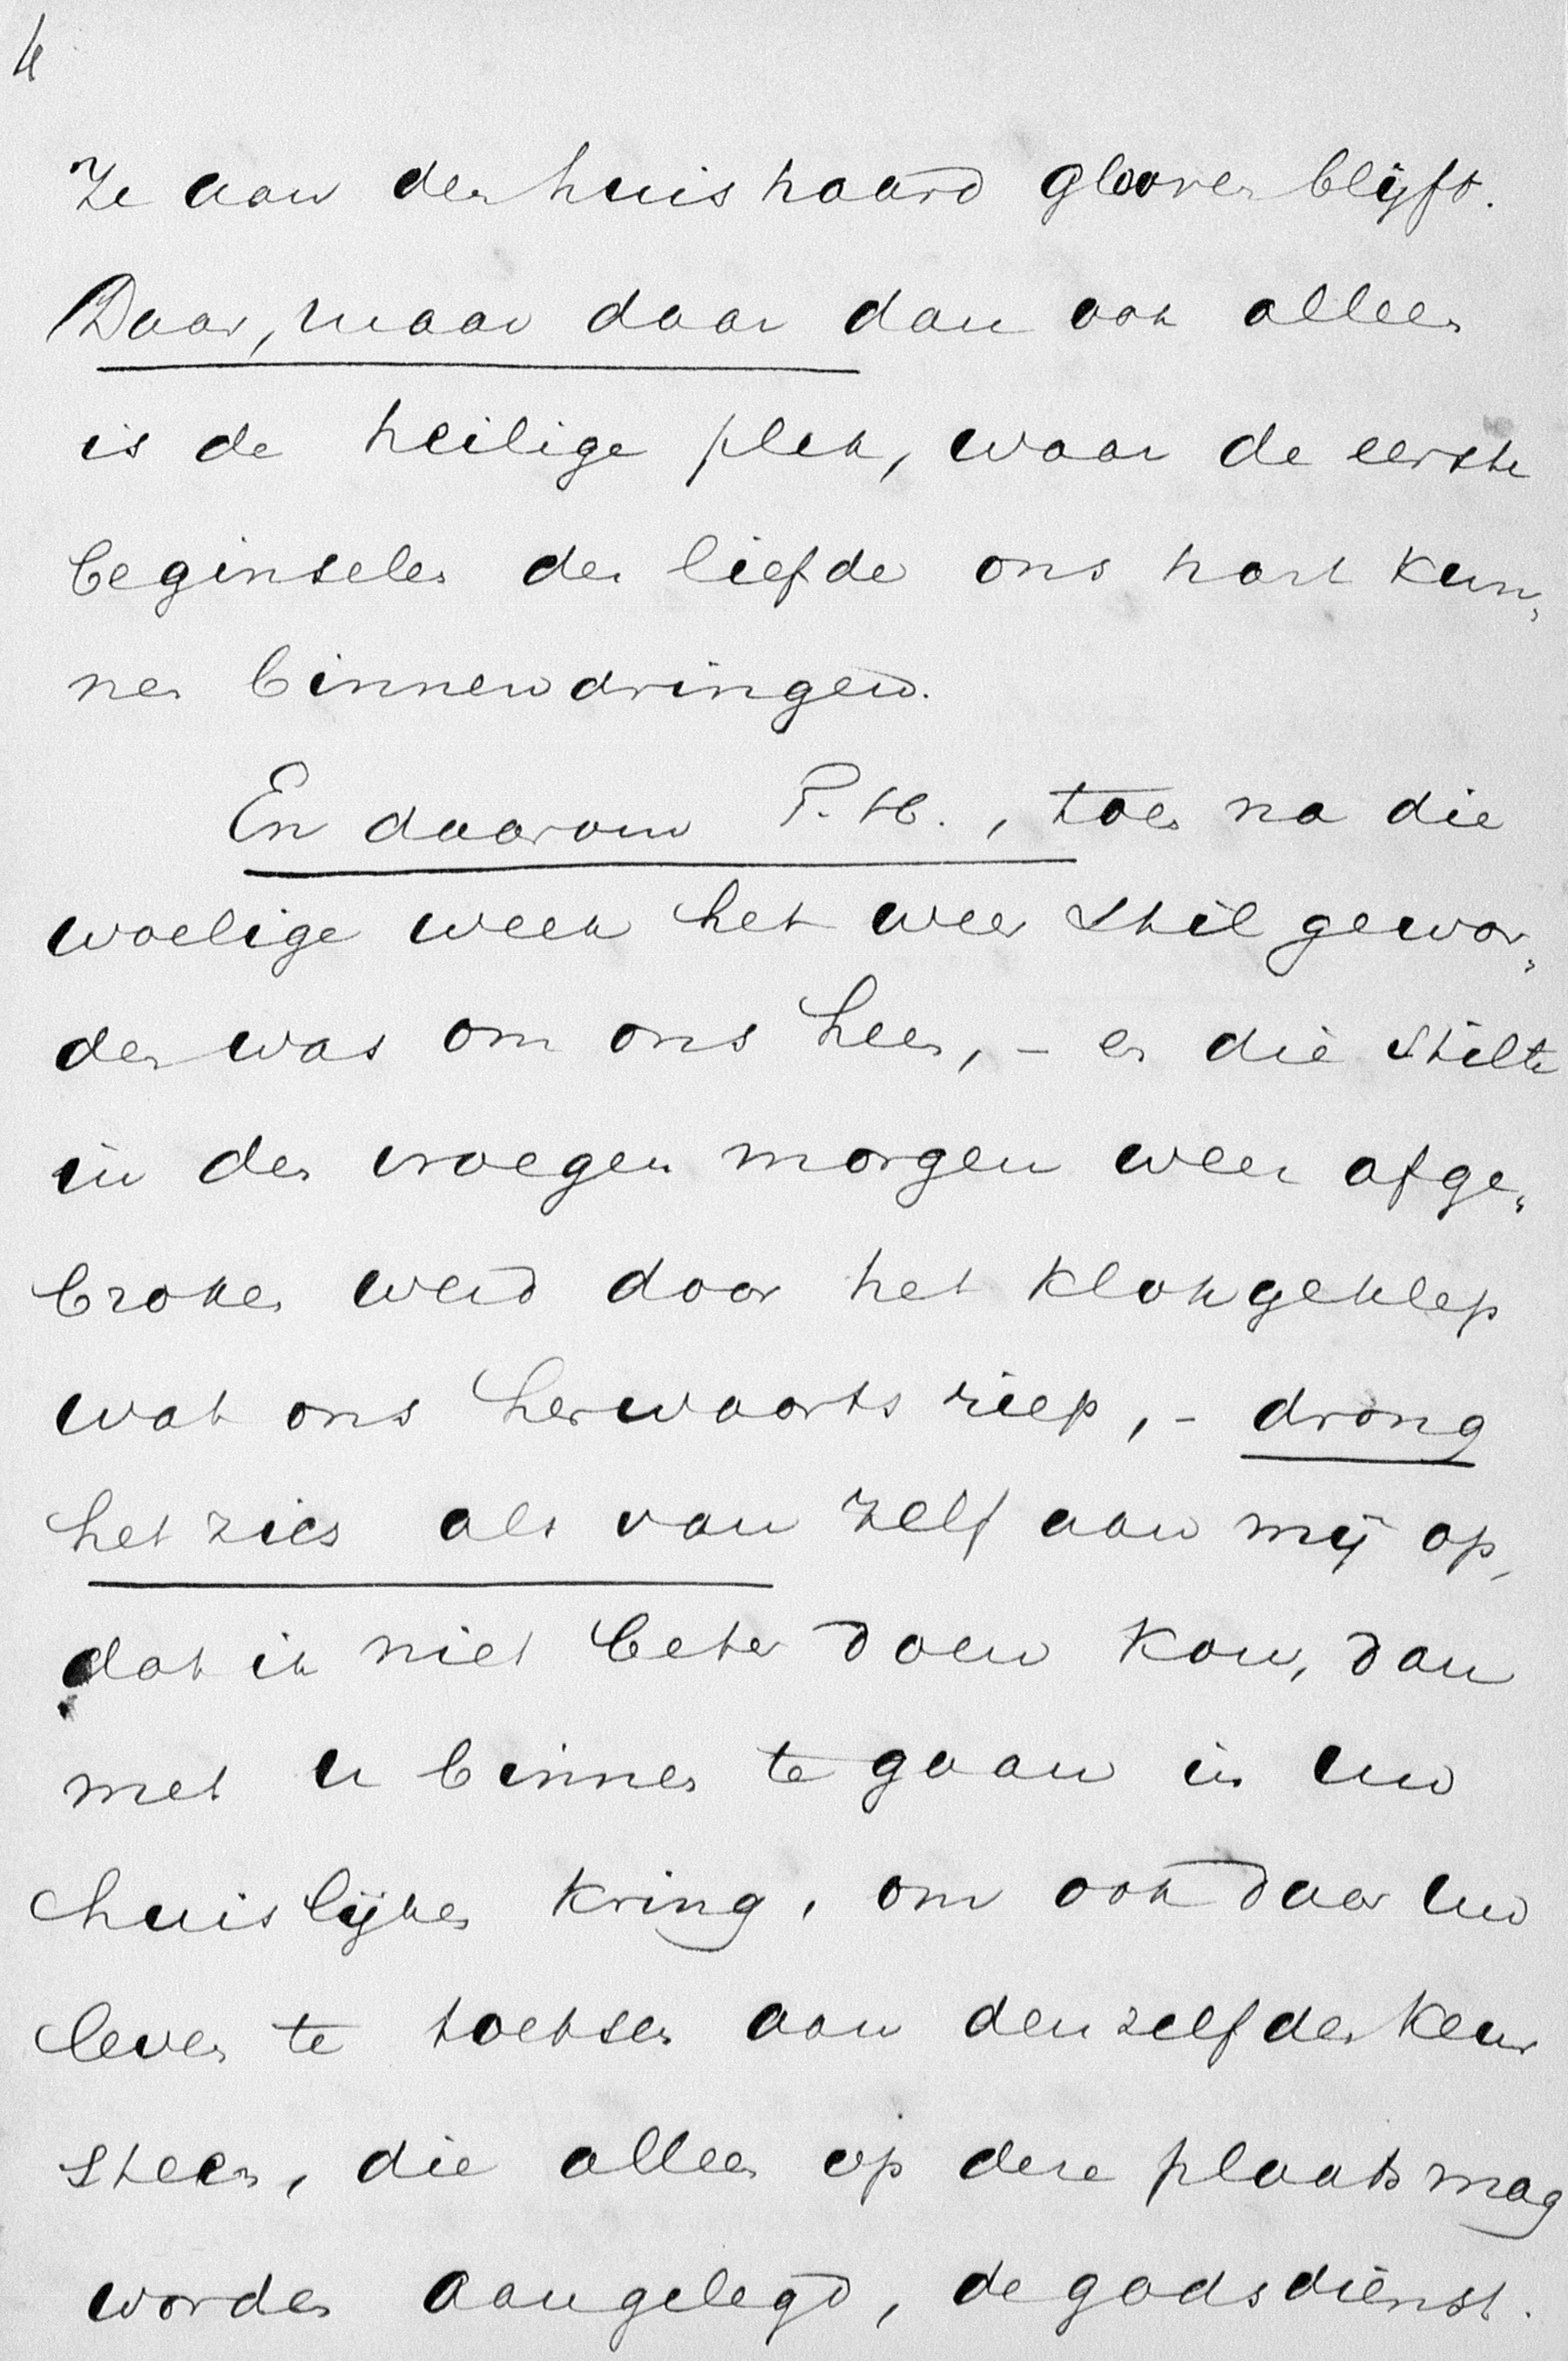 4
Ze aan den huishaard glooren blijft.
Daar, maar daar dan ook alleen
is de heilige plek, waar de eerste
beginselen der liefde ons hart kun„
nen binnendringen.
En daarom T. H., toen na die
woelige week het weer stil gewor„
den was om ons heen, – en die stilte
in den vroegen morgen weer afge„
broken werd door het klokgeklep
wat ons herwaarts riep, – drong
het zich als van zelf aan mij op,
dat ik niet beter doen kon, dan
met U binnen te gaan in Uw
huislijken kring, om ook daar Uw
leven te toetsen aan denzelfden keur
steen, die alleen op deze plaats mag
worden aangelegd, de godsdienst.